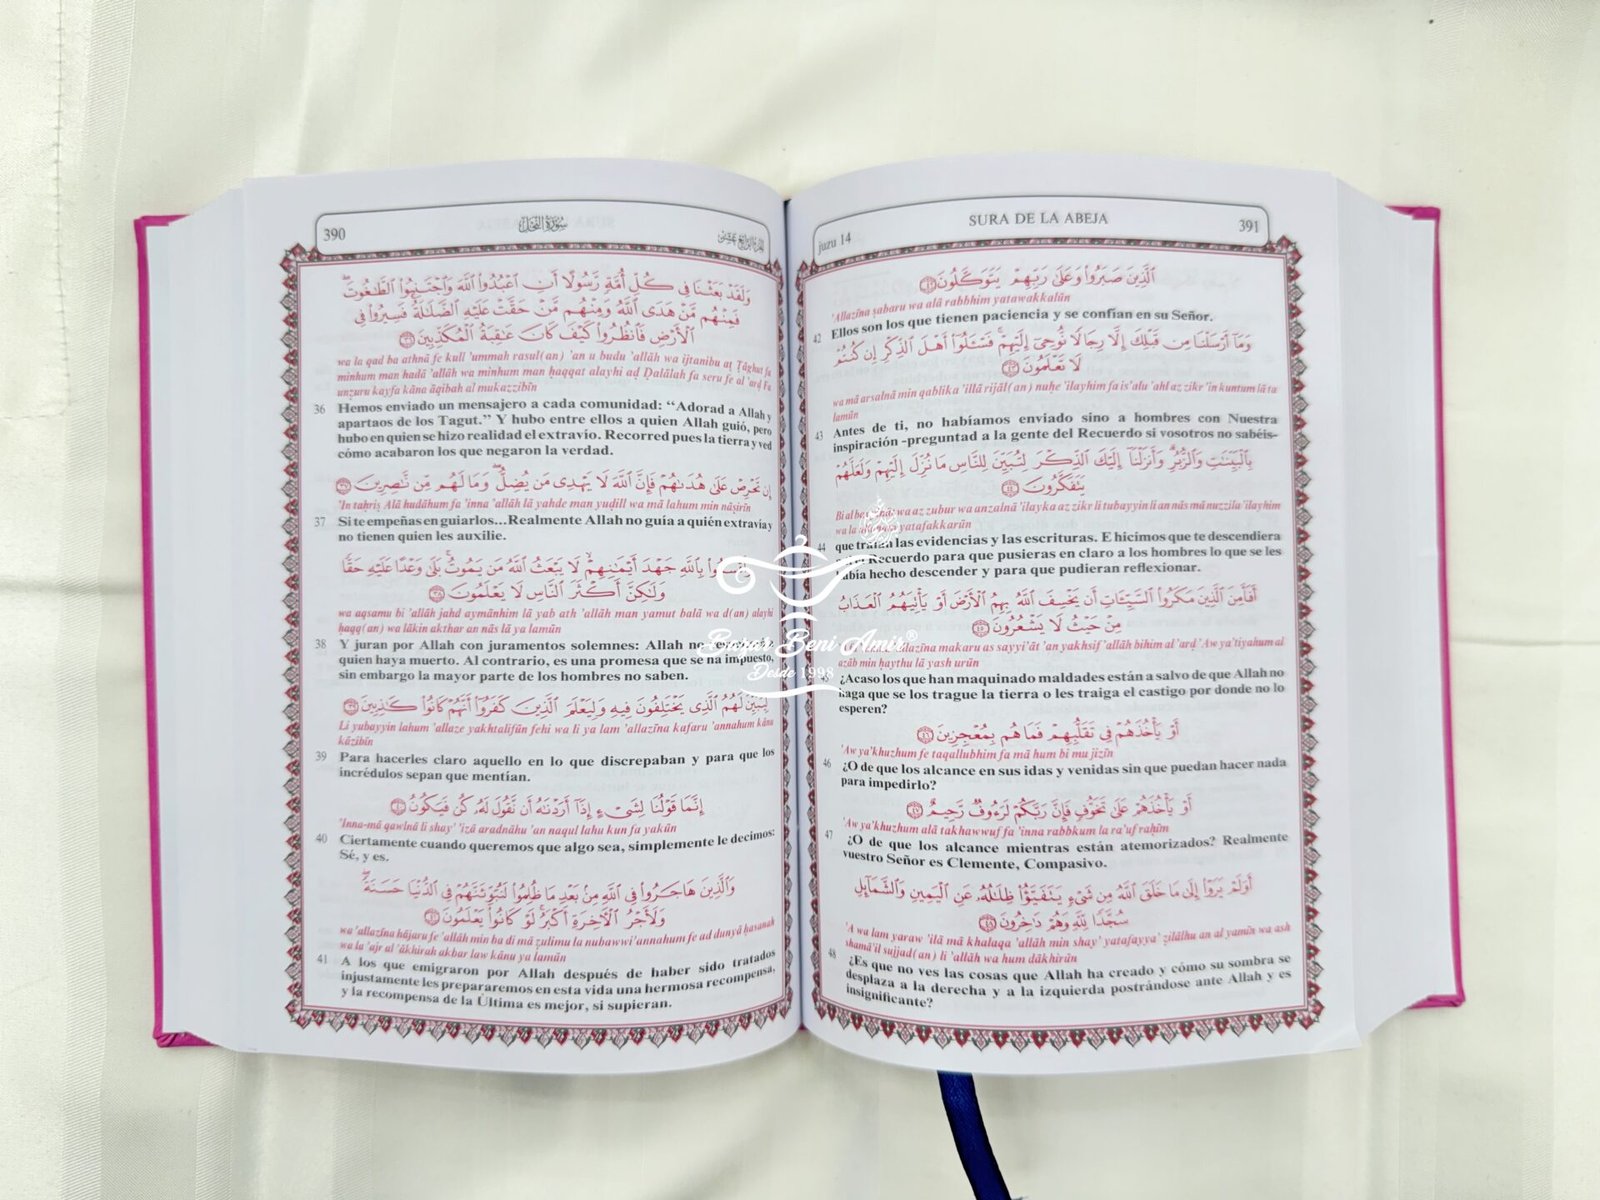 390
سورة النحل
الجزء الرابع عشر
وَلَقَدْ بَعَثْنَا فِي كُلِّ أُمَّةٍ رَّسُولًا أَنِ اعْبُدُوا اللَّهَ وَاجْتَنِبُوا الطَّاغُوتَ
فَمِنْهُم مَّنْ هَدَى اللَّهُ وَمِنْهُم مَّنْ حَقَّتْ عَلَيْهِ الضَّلَالَةُ فَسِيرُوا فِي
الْأَرْضِ فَانظُرُوا كَيْفَ كَانَ عَاقِبَةُ الْمُكَذِّبِينَ ٣٦
wa la qad ba athnā fe kull 'ummah rasul(an) 'an u budu 'allāh wa ijtanibu aṭ Ṭāghut fa
minhum man hadā 'allāh wa minhum man ḥaqqat alayhi aḍ Ḍalālah fa seru fe al 'arḍ Fa
unẓuru kayfa kāna āqibah al mukazzibīn
36 Hemos enviado un mensajero a cada comunidad: “Adorad a Allah y
apartaos de los Tagut.” Y hubo entre ellos a quien Allah guió, pero
hubo en quien se hizo realidad el extravío. Recorred pues la tierra y ved
cómo acabaron los que negaron la verdad.
إِن تَحْرِصْ عَلَىٰ هُدَاهُمْ فَإِنَّ اللَّهَ لَا يَهْدِي مَن يُضِلُّ وَمَا لَهُم مِّن نَّاصِرِينَ ٣٧
'In taḥriṣ Alā hudāhum fa 'inna 'allāh lā yahde man yuḍill wa mā lahum min nāṣirīn
37 Si te empeñas en guiarlos... Realmente Allah no guía a quién extravía y
no tienen quien les auxilie.
وَأَقْسَمُوا بِاللَّهِ جَهْدَ أَيْمَانِهِمْ لَا يَبْعَثُ اللَّهُ مَن يَمُوتُ بَلَىٰ وَعْدًا عَلَيْهِ حَقًّا
وَلَٰكِنَّ أَكْثَرَ النَّاسِ لَا يَعْلَمُونَ ٣٨
wa aqsamu bi 'allāh jahd aymānhim lā yab ath 'allāh man yamut balā wa d(an) alayhi
ḥaqq(an) wa lākin akthar an nās lā ya lamūn
38 Y juran por Allah con juramentos solemnes: Allah no
quien haya muerto. Al contrario, es una promesa que se ha impuesto,
sin embargo la mayor parte de los hombres no saben.
لِيُبَيِّنَ لَهُمُ الَّذِي يَخْتَلِفُونَ فِيهِ وَلِيَعْلَمَ الَّذِينَ كَفَرُوا أَنَّهُمْ كَانُوا كَاذِبِينَ ٣٩
Li yubayyin lahum 'allaze yakhtalifūn fehi wa li ya lam 'allazīna kafaru 'annahum kānu
kāzibīn
39 Para hacerles claro aquello en lo que discrepaban y para que los
incrédulos sepan que mentían.
إِنَّمَا قَوْلُنَا لِشَيْءٍ إِذَا أَرَدْنَاهُ أَن نَّقُولَ لَهُ كُن فَيَكُونُ ٤٠
'Inna-mā qawlnā li shay' 'izā aradnāhu 'an naqul lahu kun fa yakūn
40 Ciertamente cuando queremos que algo sea, simplemente le decimos:
Sé, y es.
وَالَّذِينَ هَاجَرُوا فِي اللَّهِ مِن بَعْدِ مَا ظُلِمُوا لَنُبَوِّئَنَّهُمْ فِي الدُّنْيَا حَسَنَةً
وَلَأَجْرُ الْآخِرَةِ أَكْبَرُ لَوْ كَانُوا يَعْلَمُونَ ٤١
wa 'allazīna hājaru fe 'allāh min ba di mā ẓulimu la nubawwi'annahum fe ad dunyā ḥasanah
wa la 'ajr al 'ākhirah akbar law kānu ya lamūn
41 A los que emigraron por Allah después de haber sido tratados
injustamente les prepararemos en esta vida una hermosa recompensa,
y la recompensa de la Última es mejor, si supieran.
juzu 14
SURA DE LA ABEJA
391
الَّذِينَ صَبَرُوا وَعَلَىٰ رَبِّهِمْ يَتَوَكَّلُونَ ٤٢
'Allazīna ṣabaru wa alā rabbhim yatawakkalūn
42 Ellos son los que tienen paciencia y se confían en su Señor.
وَمَا أَرْسَلْنَا مِن قَبْلِكَ إِلَّا رِجَالًا نُّوحِي إِلَيْهِمْ فَاسْأَلُوا أَهْلَ الذِّكْرِ إِن كُنتُمْ
لَا تَعْلَمُونَ ٤٣
wa mā arsalnā min qablika 'illā rijāl(an) nuḥe 'ilayhim fa is'alu 'ahl az zikr 'in kuntum lā ta
lamūn
43 Antes de ti, no habíamos enviado sino a hombres con Nuestra
inspiración -preguntad a la gente del Recuerdo si vosotros no sabéis-
بِالْبَيِّنَاتِ وَالزُّبُرِ وَأَنزَلْنَا إِلَيْكَ الذِّكْرَ لِتُبَيِّنَ لِلنَّاسِ مَا نُزِّلَ إِلَيْهِمْ وَلَعَلَّهُمْ
يَتَفَكَّرُونَ ٤٤
Bi al wa az zubur wa anzalnā 'ilayka az zikr li tubayyin li an nās mā nuzzila 'ilayhim
wa la yatafakkarūn
44 que las evidencias y las escrituras. E hicimos que te descendiera
Recuerdo para que pusieras en claro a los hombres lo que se les
había hecho descender y para que pudieran reflexionar.
أَفَأَمِنَ الَّذِينَ مَكَرُوا السَّيِّئَاتِ أَن يَخْسِفَ اللَّهُ بِهِمُ الْأَرْضَ أَوْ يَأْتِيَهُمُ الْعَذَابُ
مِنْ حَيْثُ لَا يَشْعُرُونَ ٤٥
makaru as sayyi'āt 'an yakhsif 'allāh bihim al 'arḍ 'Aw ya'tiyahum al
azāb min ḥaythu lā yash urūn
¿Acaso los que han maquinado maldades están a salvo de que Allah no
haga que se los trague la tierra o les traiga el castigo por donde no lo
esperen?
أَوْ يَأْخُذَهُمْ فِي تَقَلُّبِهِمْ فَمَا هُم بِمُعْجِزِينَ ٤٦
'Aw ya'khuzhum fe taqallubhim fa mā hum bi mu jizīn
46 ¿O de que los alcance en sus idas y venidas sin que puedan hacer nada
para impedirlo?
أَوْ يَأْخُذَهُمْ عَلَىٰ تَخَوُّفٍ فَإِنَّ رَبَّكُمْ لَرَءُوفٌ رَّحِيمٌ ٤٧
'Aw ya'khuzhum alā takhawwuf fa 'inna rabbkum la ra'uf raḥīm
47 ¿O de que los alcance mientras están atemorizados? Realmente
vuestro Señor es Clemente, Compasivo.
أَوَلَمْ يَرَوْا إِلَىٰ مَا خَلَقَ اللَّهُ مِن شَيْءٍ يَتَفَيَّأُ ظِلَالُهُ عَنِ الْيَمِينِ وَالشَّمَائِلِ
سُجَّدًا لِّلَّهِ وَهُمْ دَاخِرُونَ ٤٨
'A wa lam yaraw 'ilā mā khalaqa 'allāh min shay' yatafayya' ẓilālhu an al yamīn wa ash
shamā'il sujjad(an) li 'allāh wa hum dākhirūn
48 ¿Es que no ves las cosas que Allah ha creado y cómo su sombra se
desplaza a la derecha y a la izquierda postrándose ante Allah y es
insignificante?
Bazar Beni Amir®
Desde 1998